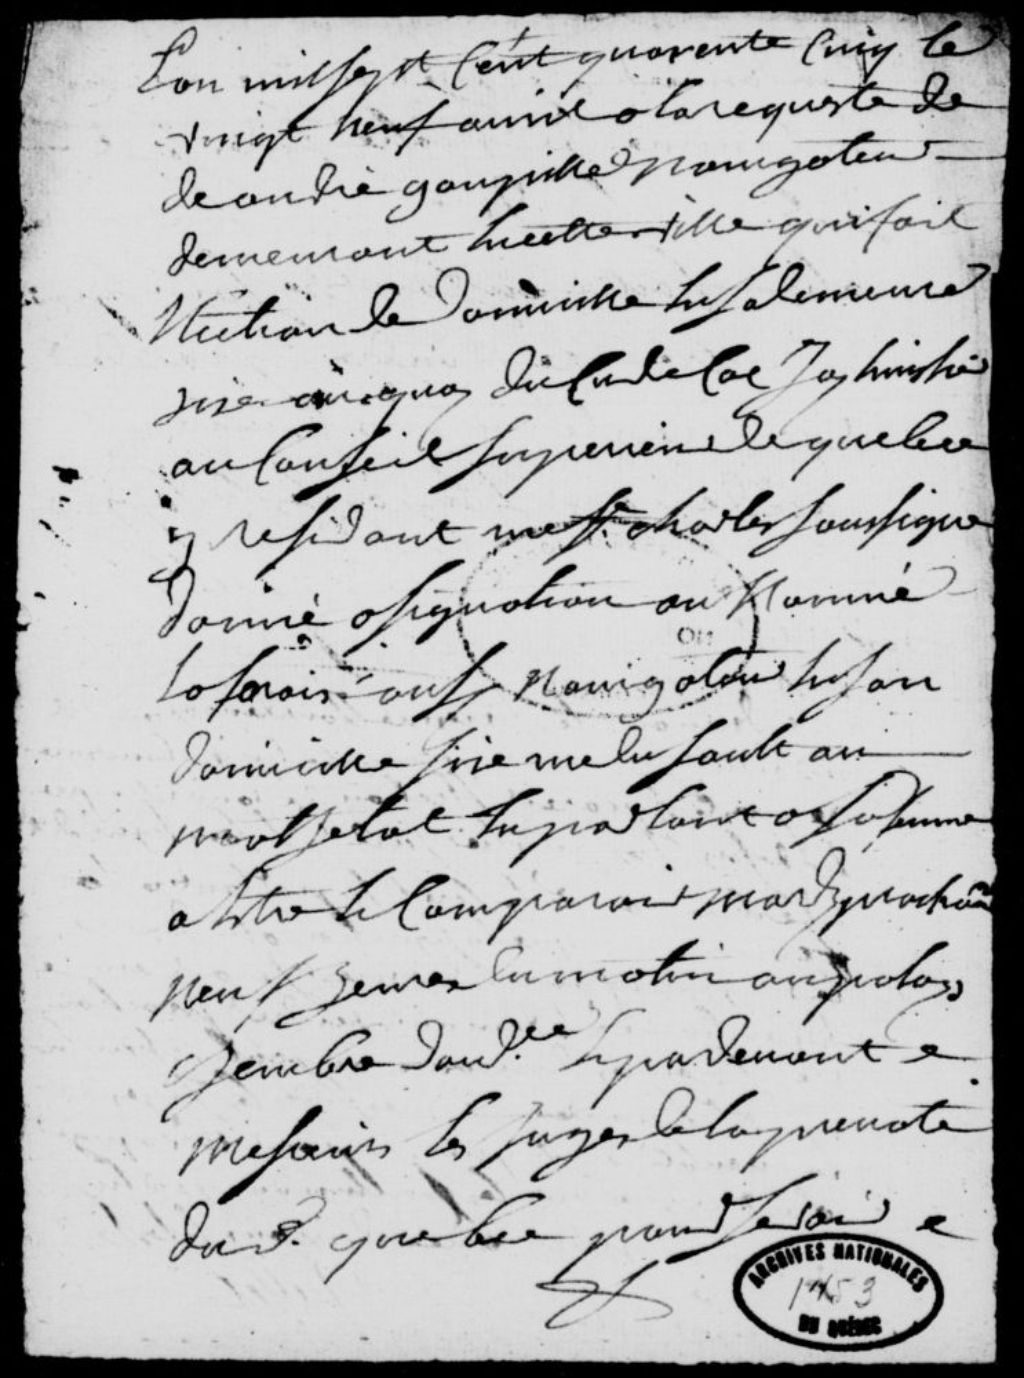 Lan mil sept Cent quarente Cinq le
vingt neuf avril a la requeste de
de andré goupille navigateur
demeurant En cette ville qui fait
Election de Domicille En sa demeure
size au quay du Cu de Sac Jay huissié
au Conseil superieur de quebec
y residant rue St charles soussigné
donné asignation au Nommé
aussy Navigateur En son
domicille size rue du sault au
matelot En parlant a sa femme
a Estre Et Comparoir mardy prochain
neuf heures du matin au palays
Chambre daud.ce Et pardevant
messieurs les Juges de la prevoté
dud. quebec pour se voir
ARCHIVES NATIONALES
1453
DU QUÉBEC